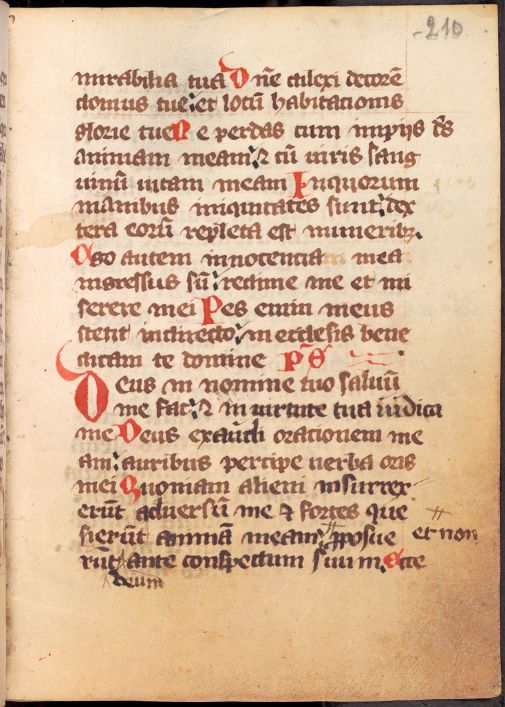 -210
mirabilia tua Dn̄e dilexi decorē
domus tue: et locū habitacionis
glorie tue Ne perdas cum impijs d̄s
animam meam: ⁊ cū uiris sang
uinū uitam meam In quorum
manibus iniquitates sunt: dex
tera eorū repleta est munerib₃.
Ego autem in innocentia mea
ingressus sū: redime me et mi
serere mei Pes enim meus
stetit in directo: in ecclesijs bene
dicam te domine pˢ
Deus in nomine tuo saluū
me fac: ⁊ in uirtute tua iudica
me Deus exaudi orationem me
am: auribus percipe uerba oris
mei Quoniam alieni insurrex
erūt aduersū me ⁊ fortes que
sierūt animā meam: et non pposue
rūt deum ante conspectum suum. Ecce